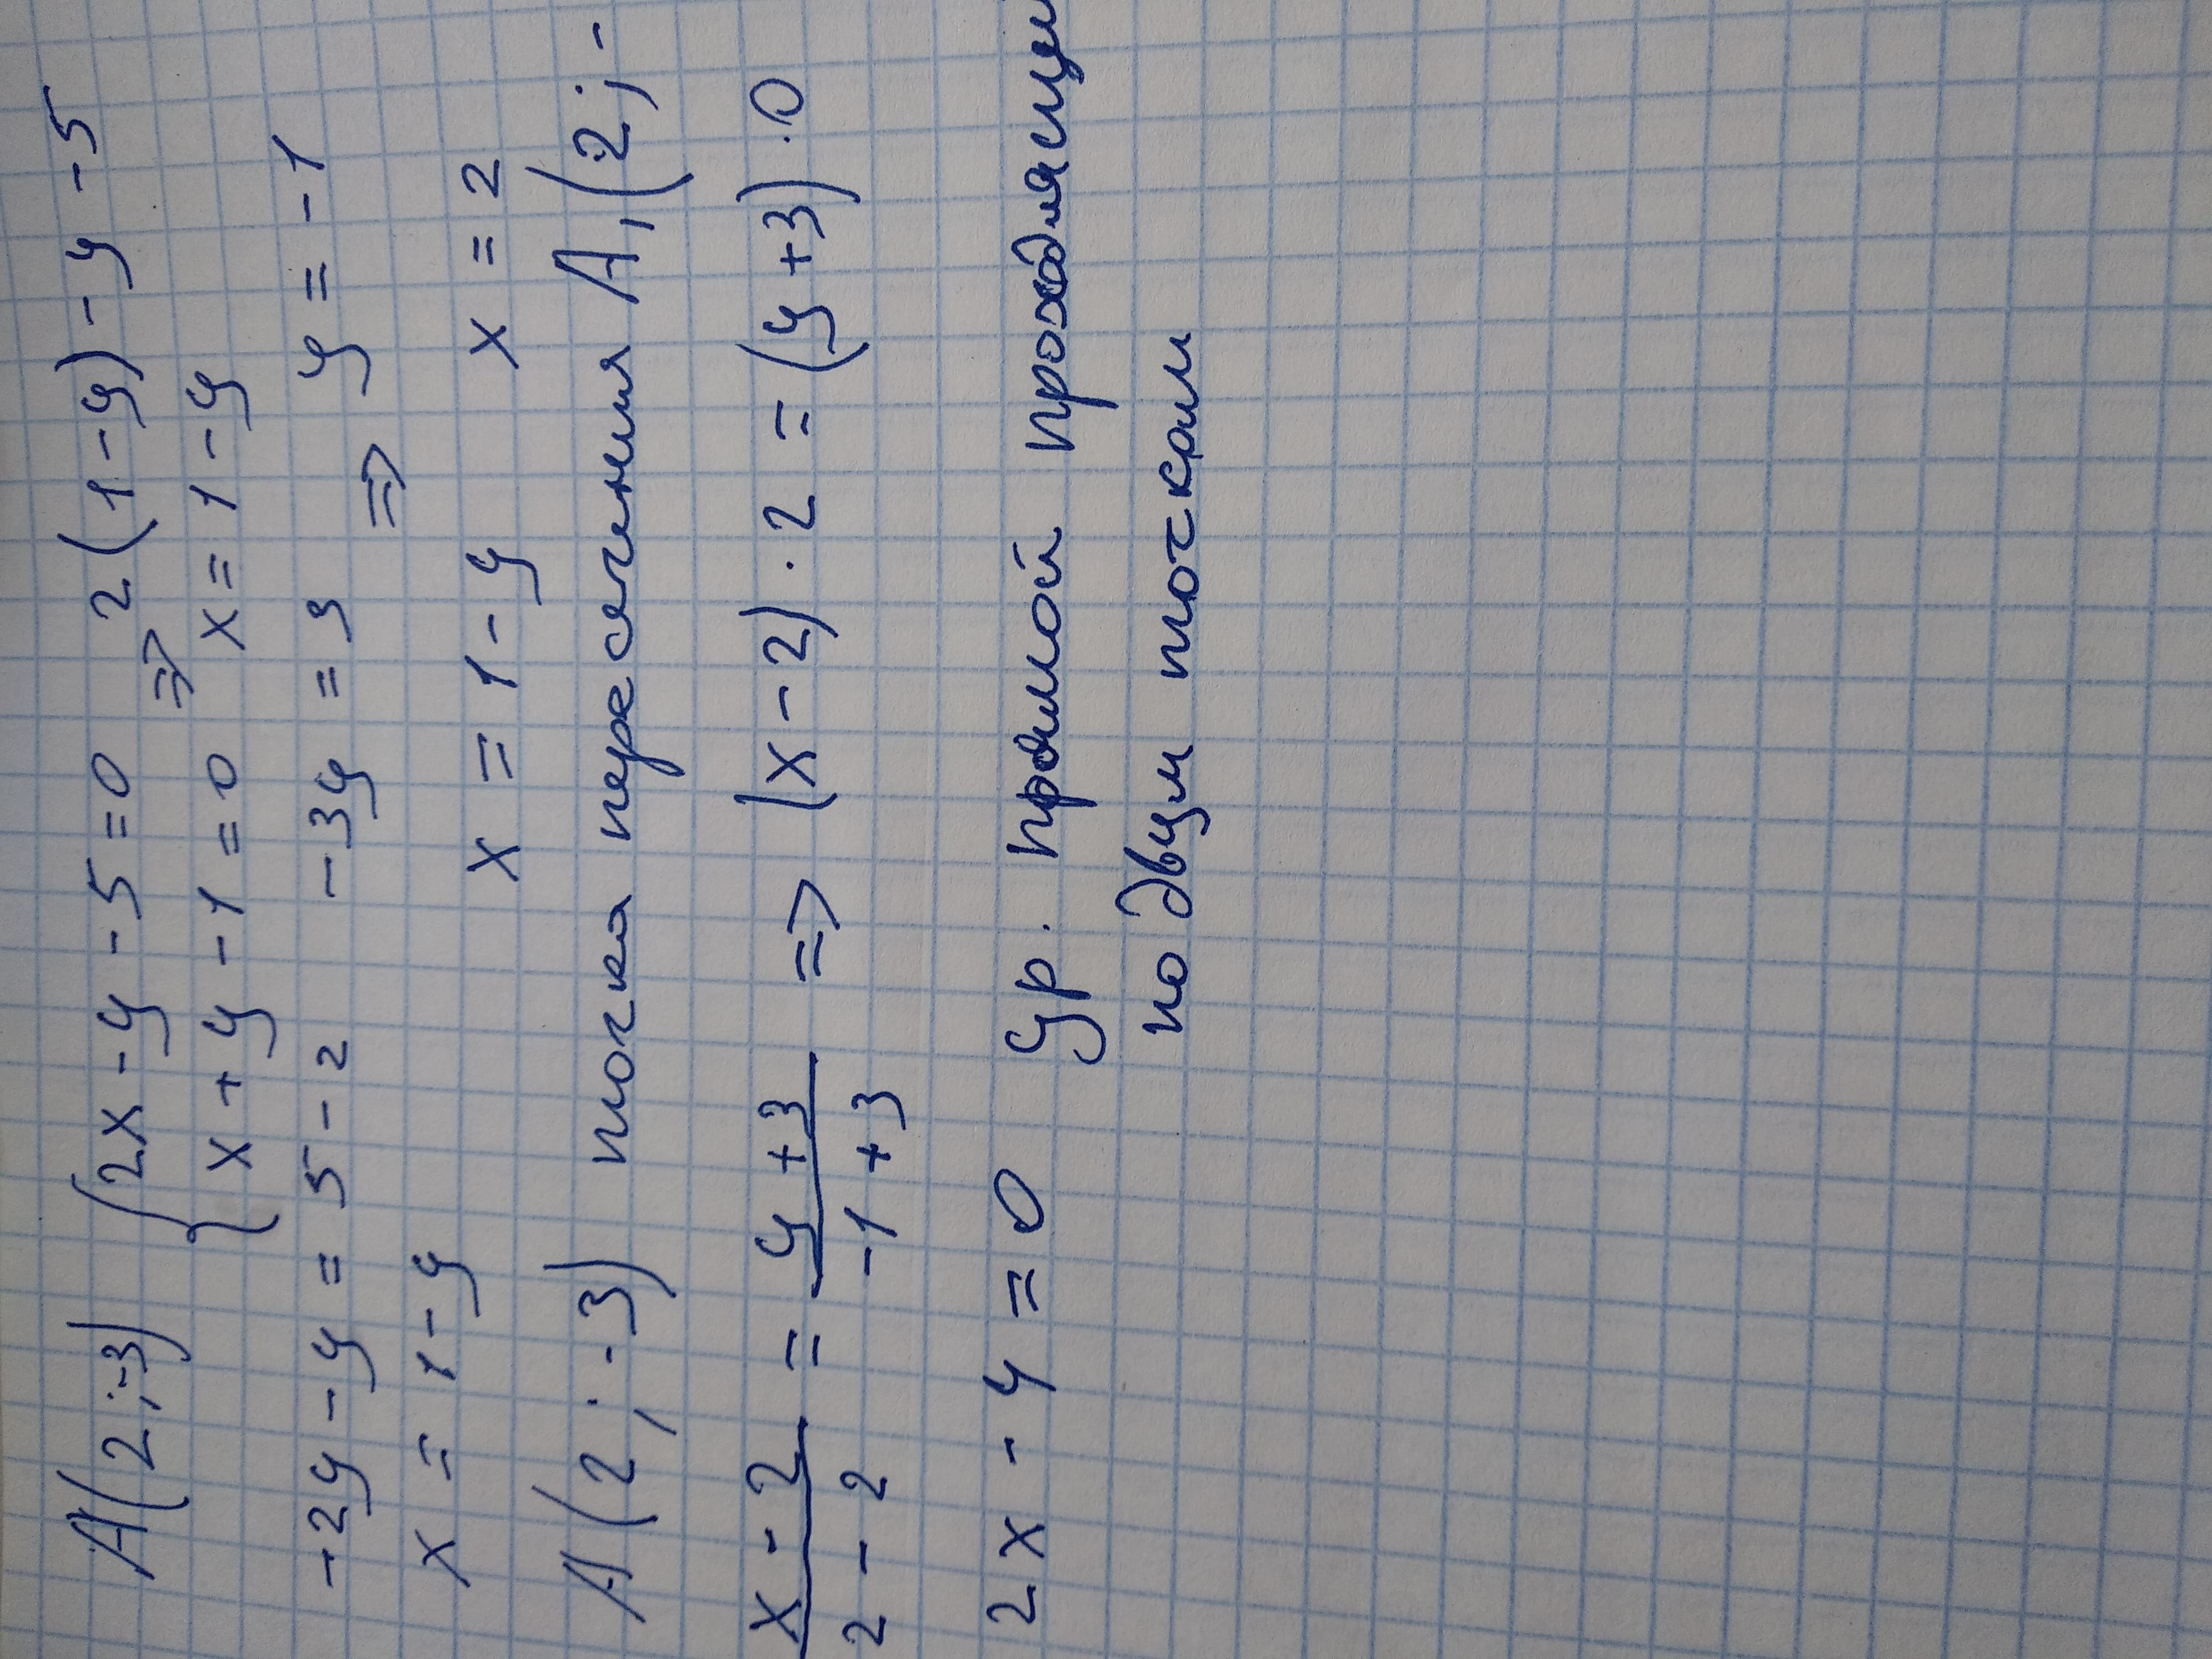 A(2;-3) {2x-y-5=0 => 2(1-y)-y-5
x+y-1=0 x=1-y
-2y-y=5-2 -3y=3 => y=-1
x=1-y x=1-y x=2
A(2;-3) точка пересечения A₁(2;-
x-2/2-2 = y+3/-1+3 => (x-2)·2=(y+3)·0
2x-4=0 Ур. прямой проходящей
по двум точкам